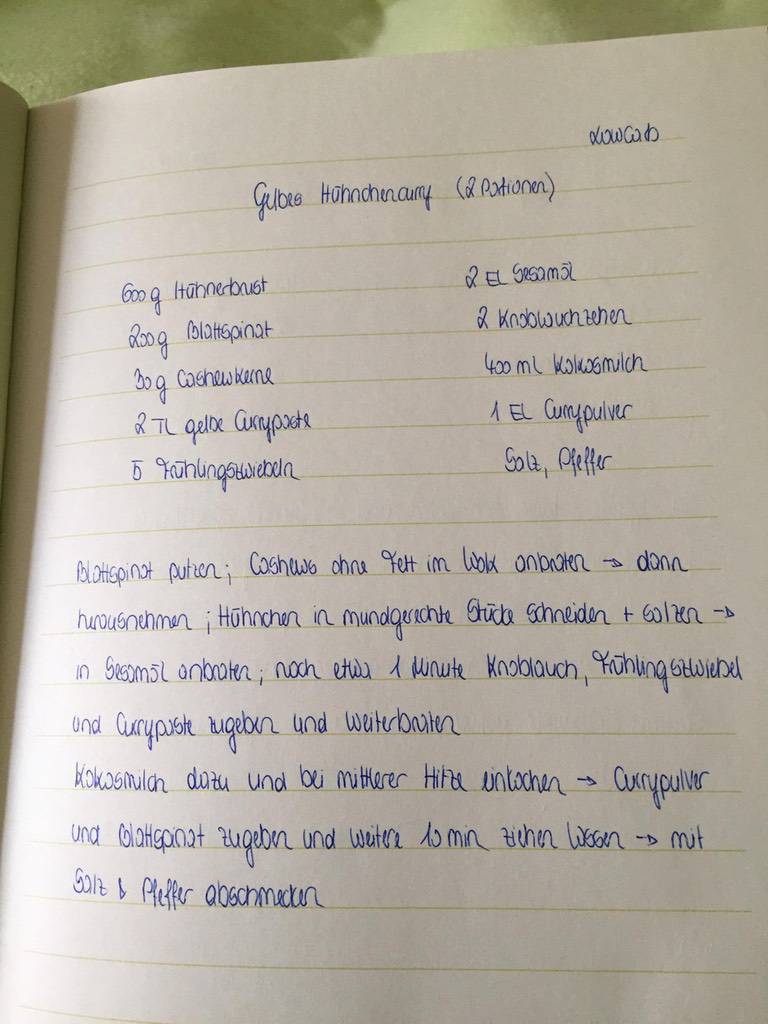 LowCarb
Gelbes Hühnchencurry (2 Portionen)
600g Hühnerbrust
200g Blattspinat
30g Cashewkerne
2 TL gelbe Currypaste
5 Frühlingszwiebeln
2 EL Sesamöl
2 Knoblauchzehen
400 ml Kokosmilch
1 EL Currypulver
Salz, Pfeffer
Blattspinat putzen; Cashews ohne Fett im Wok anbraten → dann
herausnehmen; Hühnchen in mundgerechte Stücke schneiden + salzen →
in Sesamöl anbraten; nach etwa 1 Minute Knoblauch, Frühlingszwiebel
und Currypaste zugeben und weiterbraten
Kokosmilch dazu und bei mittlerer Hitze einkochen → Currypulver
und Blattspinat zugeben und weitere 10 min ziehen lassen → mit
Salz & Pfeffer abschmecken